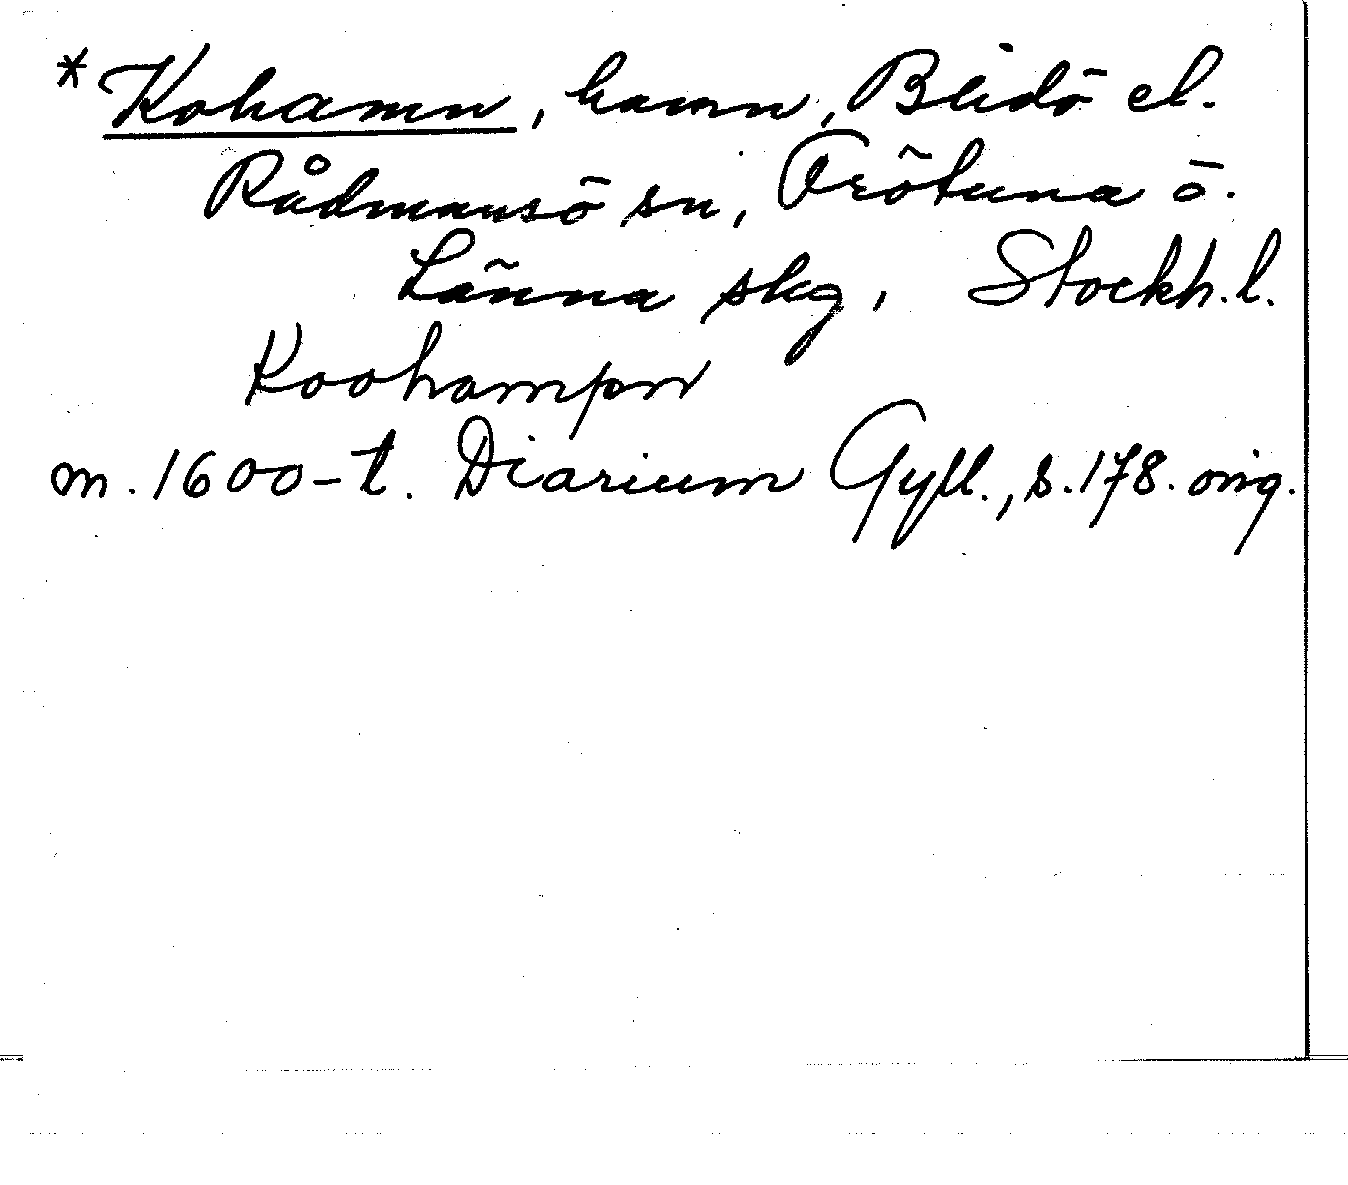 * Kohamn, hamn, Blidö el.
Rådmansö sn, Frötuna o.
Länna skg, Stockh. l.
Koohampn
m. 1600-t. Diarium Gyll., s. 178. orig.